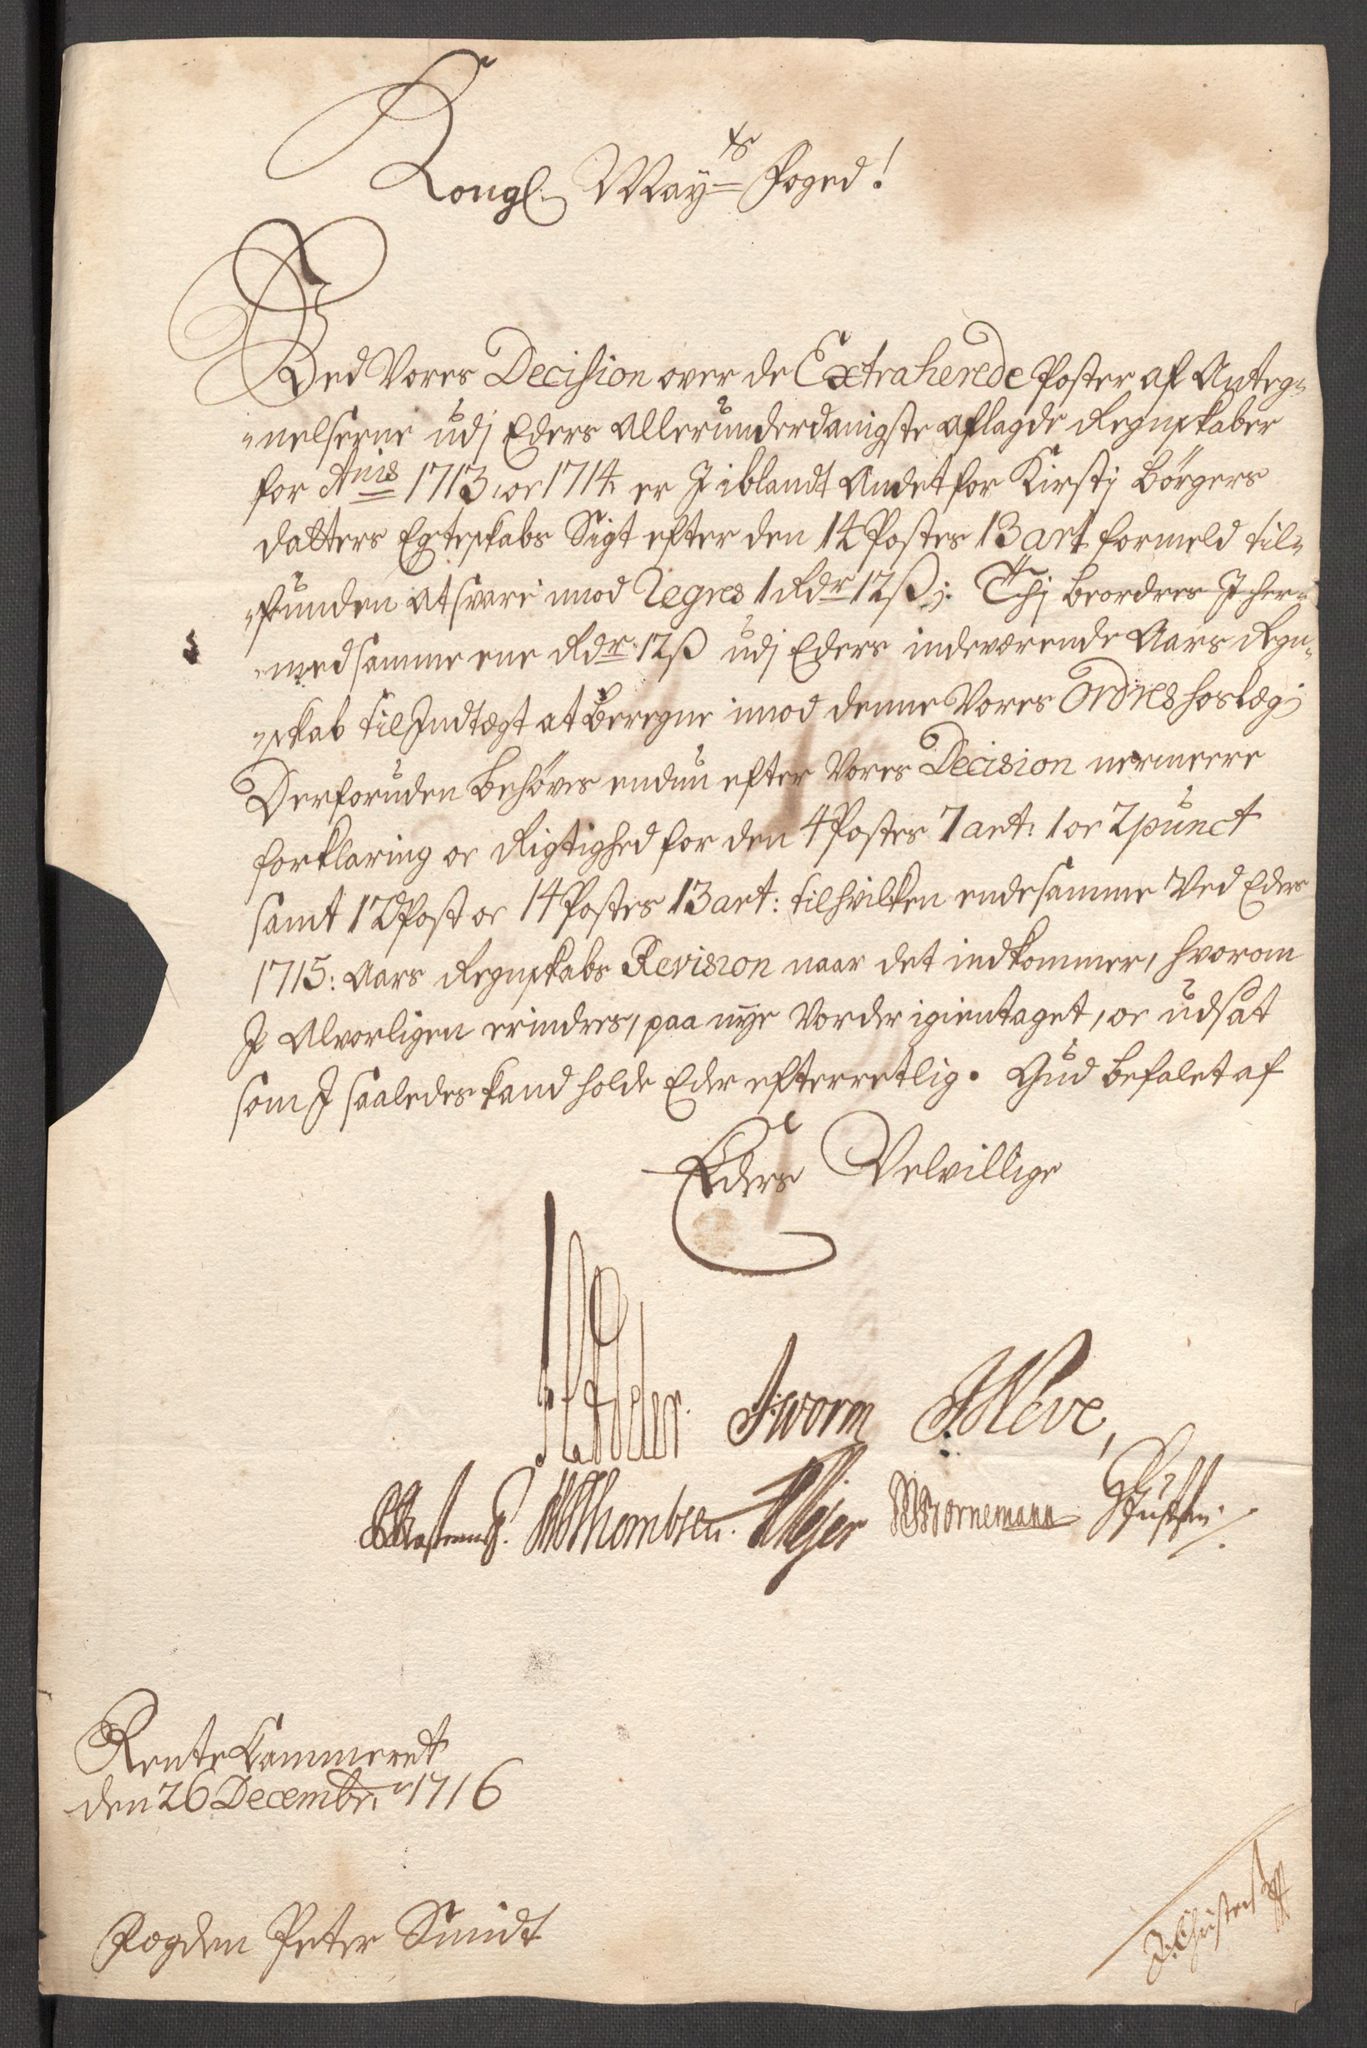 Kongl. May.ts Foged!
Ved Vores Decision over de Extraherede Poster af Anteg-
nelserne udj Eders Allerunderdanigste aflagde Regnskaber
for Anis 1713, oc 1714, er J iblandt Andet for Kirstj Børgers
datters Egteskabs Sigt efter den 14 Postes 13 art formeld til-
funden at svare imod Regres 1 Rdr 12ß; Thj beordres J her-
med samme ene Rdr: 12ß udj Eders indeværende Aars Regn-
skab til Indtægt at beregne imod denne Vores Ordres hoslæg;
Derforuden behøves endnu efter Vores Decision nermeere
forklaring oc Rigtighed for den 4 Postes 7 art: 1 oc 2 punct
samt 12 Post oc 14 Postes 13 art: til hvilken ende samme Ved Eders
1715: Aars Regnskabs Revision naar det indkommer, hvorom
J Alvorligen erindres, paa nye Vorder igientaget, oc udsat
som J saaledes kand holde Eder efterretlig. Gud befalet af
Eders Velvillige
Adeler. J: Worm Neve,
Thombsen. Mejer Bornemann
Rente Cammeret
den 26 Decembr: 1716
Fogden Peter Smidt